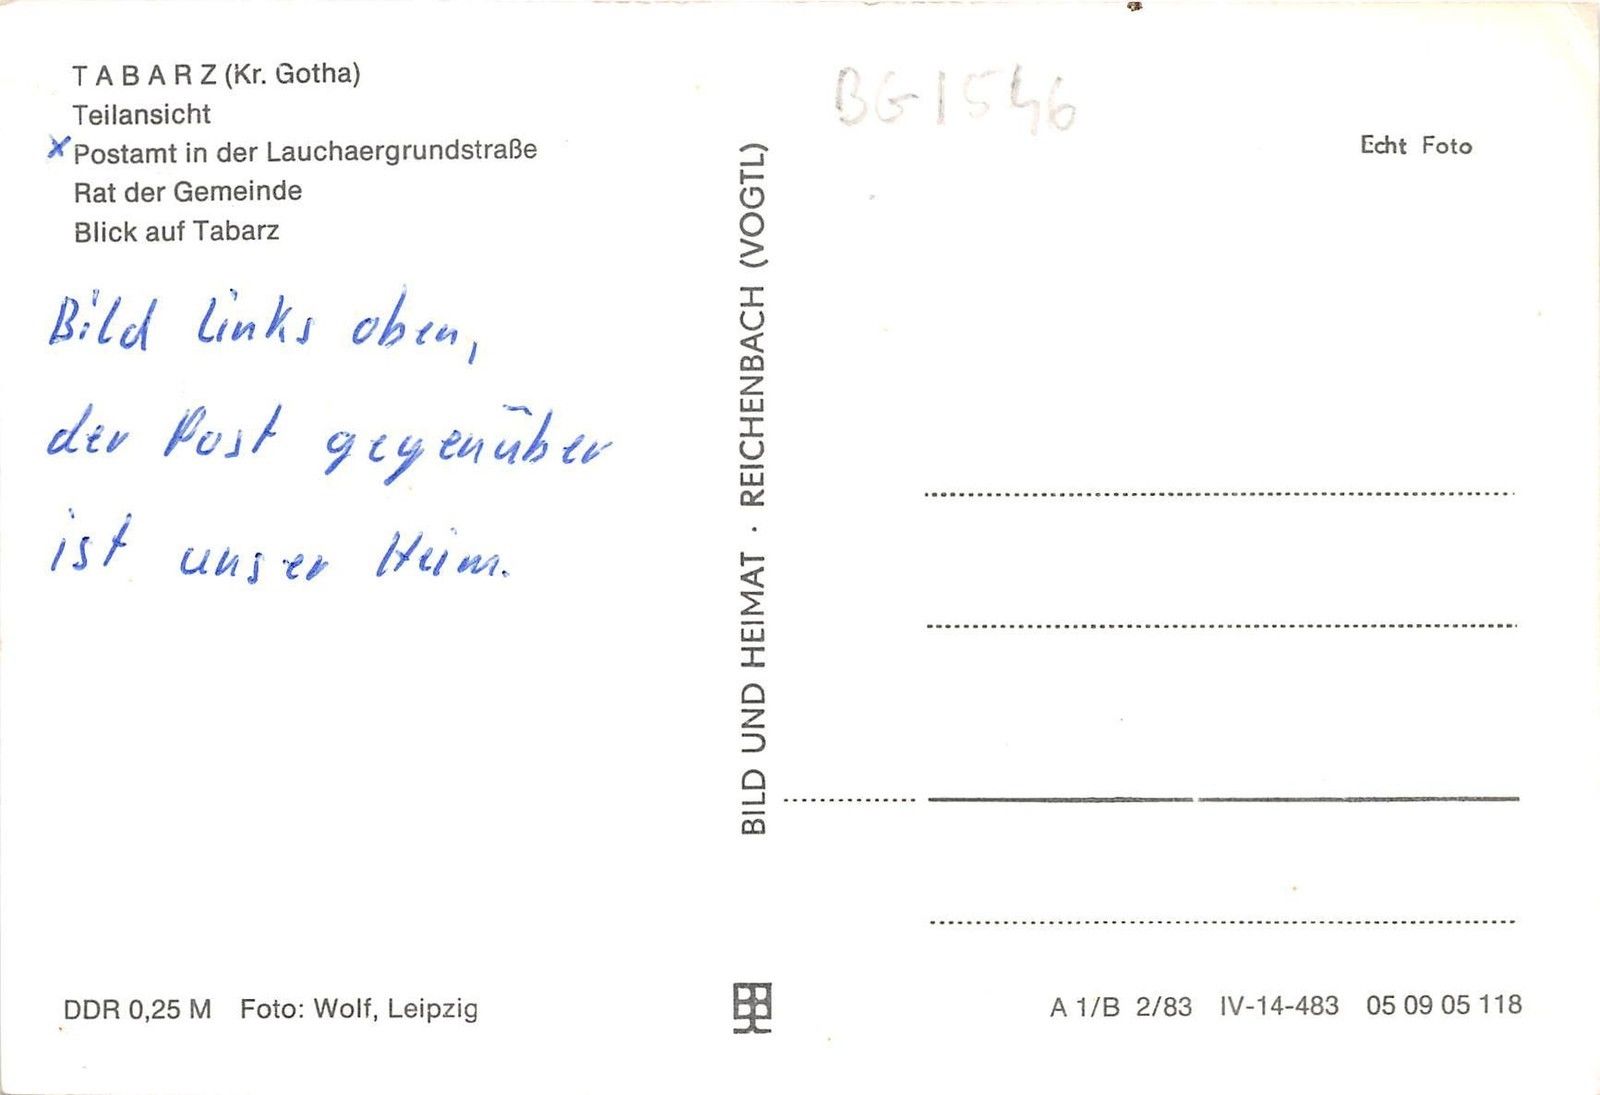 TABARZ (Kr. Gotha)
Teilansicht
x Postamt in der Lauchaergrundstraße
Rat der Gemeinde
Blick auf Tabarz
Bild links oben,
der Post gegenüber
ist unser Heim.
DDR 0,25 M Foto: Wolf, Leipzig
BILD UND HEIMAT · REICHENBACH (VOGTL)
BG1546
Echt Foto
A 1/B 2/83 IV-14-483 05 09 05 118